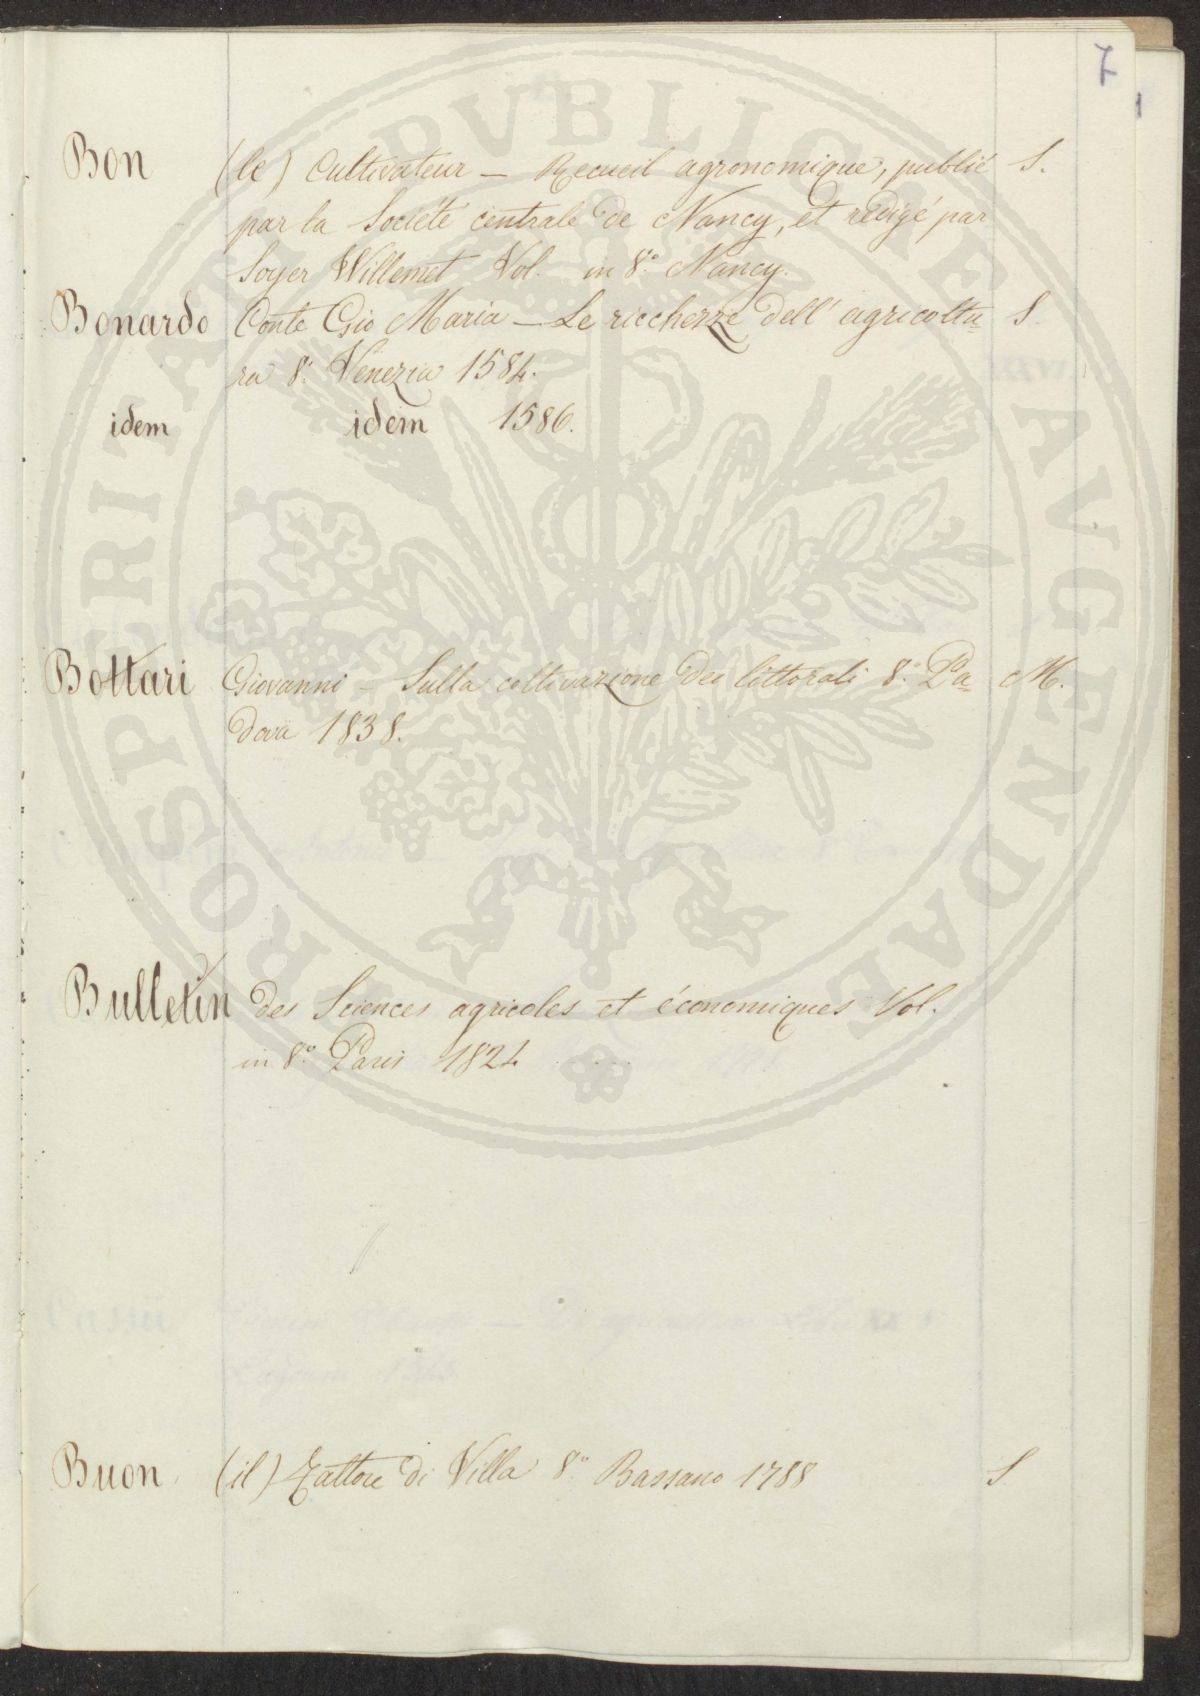 7
Bon (le) Cultivateur — Recueil agronomique, publié S.
par la Société centrale de Nancy, et rédigé par
Soyer Willemet Vol. in 8.° Nancy.
Bonardo Conte Gio Maria — Le ricchezze dell' agricoltu= S.
ra 8.° Venezia 1584.
idem idem 1586.
Bottari Giovanni — Sulla coltivazione dei littorali 8.° Pa= M.
dova 1838.
Bulletin des Sciences agricoles et économiques Vol.
in 8.° Paris 1824
Buon (il) Fattore di Villa 8.° Bassano 1788 S
PROSPERITATI PVBLICAE AVGENDAE